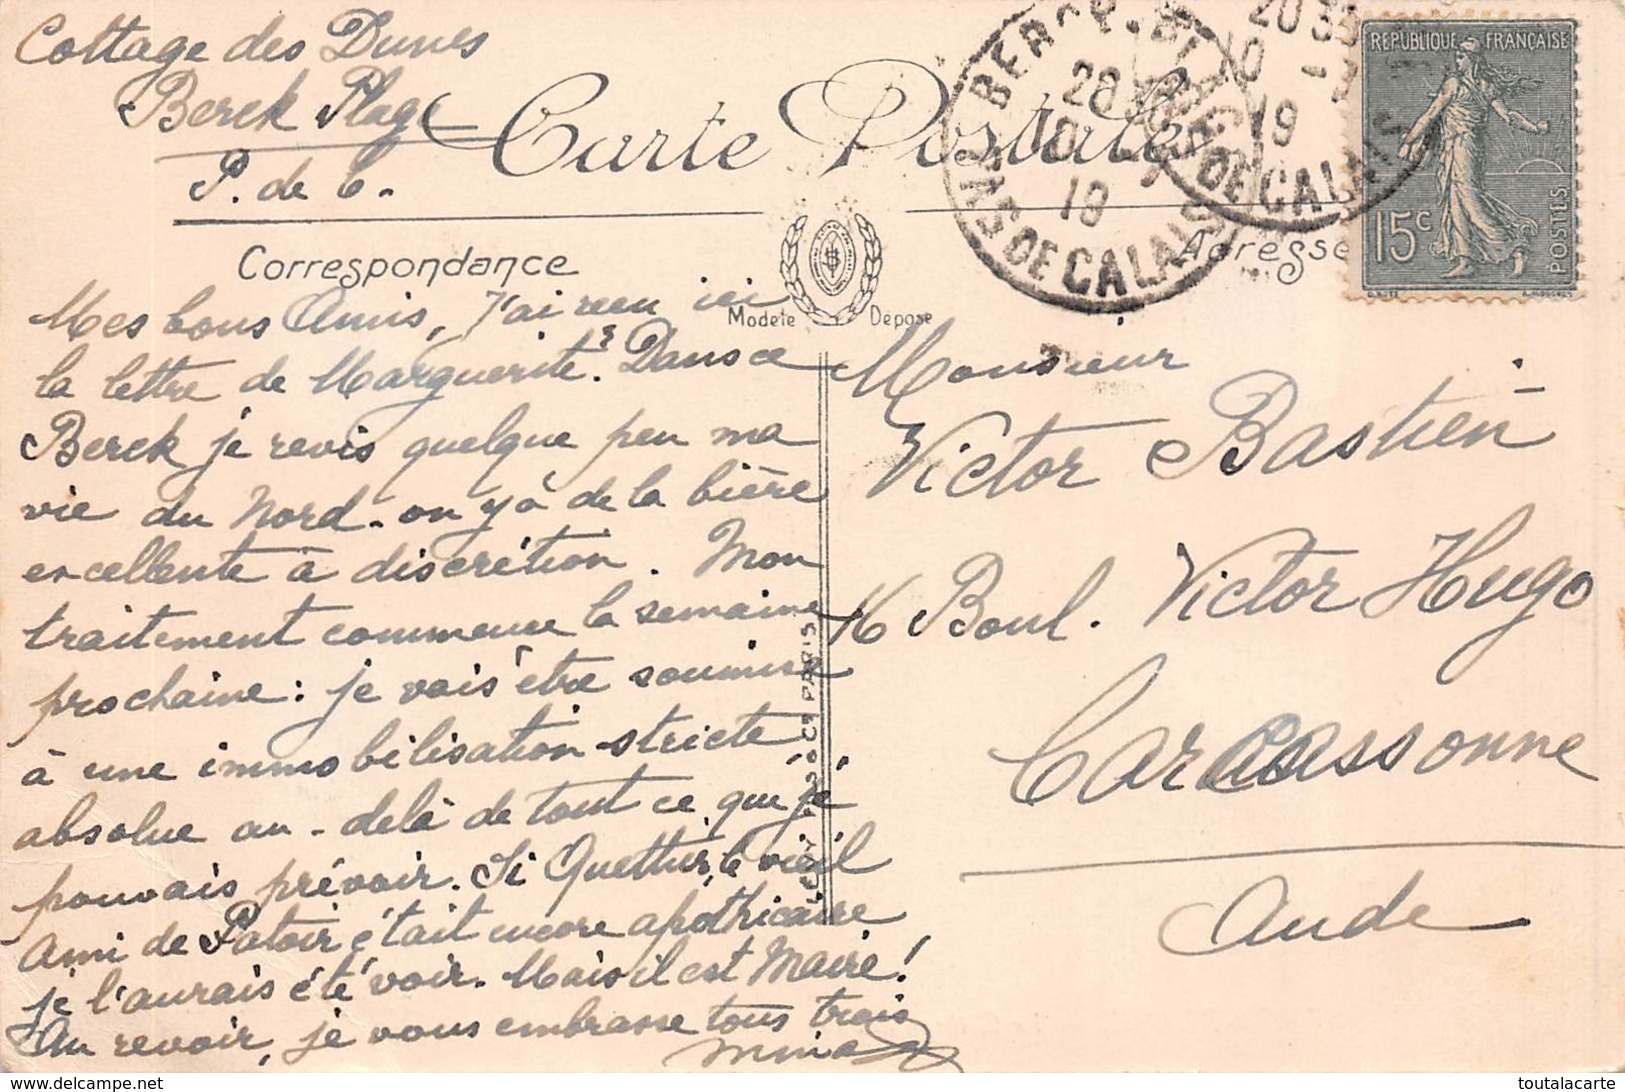 Cottage des Dunes
Berck Plage
P. de C.
Carte Postale
Correspondance
Adresse
Modèle Déposé
BERCK-PLAGE
PAS DE CALAIS
RÉPUBLIQUE FRANÇAISE
15c
POSTES
Mes bons Amis, J'ai reçu ici
la lettre de Marguerite. Dans ce
Berck je revis quelque peu ma
vie du Nord - on y a de la bière
excellente à discrétion. Mon
traitement commence la semaine
prochaine : je vais être soumise
à une immobilisation stricte,
absolue au-delà de tout ce que je
pouvais prévoir. Si Quettier, le vieil
ami de Patoir était encore apothicaire
je l'aurais été voir. Mais il est Maire !
Au revoir, je vous embrasse tous trois
Monsieur
Victor Bastien
Boul. Victor Hugo
Carcassonne
Aude
PARIS
toutalacarte